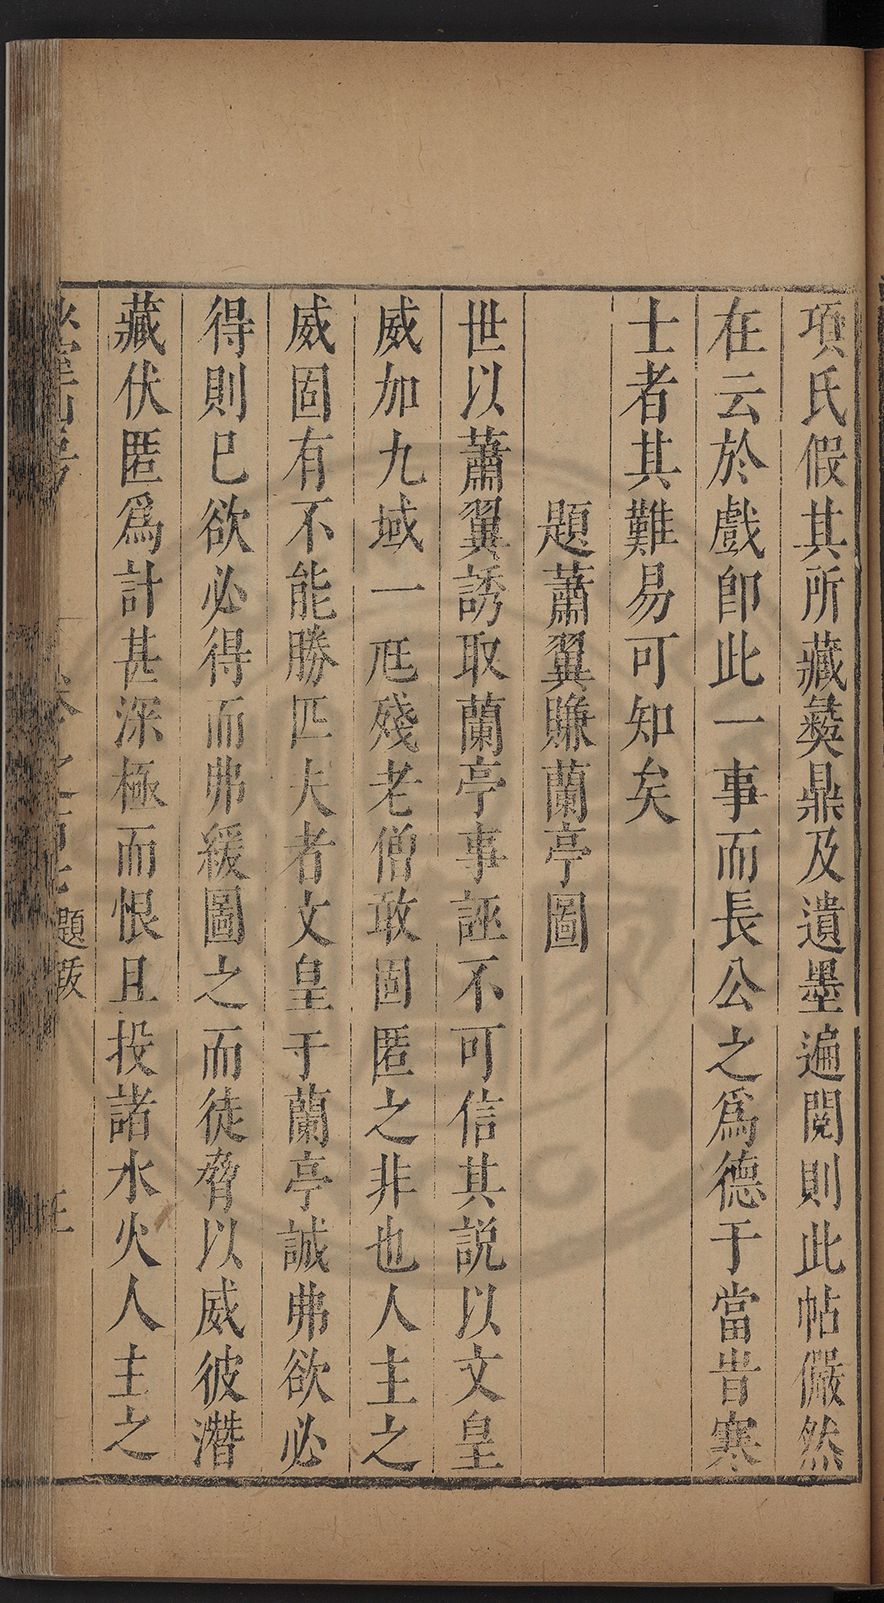 項氏假其所藏彝鼎及遺墨遍閱則此帖儼然
在云於戲卽此一事而長公之爲德于當旹寒
士者其難易可知矣
題蕭翼賺蘭亭圖
世以蕭翼誘取蘭亭事誣不可信其説以文皇
威加九域一尫殘老僧敢固匿之非也人主之
威固有不能勝匹夫者文皇于蘭亭誠弗欲必
得則已欲必得而弗緩圖之而徒脅以威彼潛
藏伏匿爲計甚深極而恨且投諸水火人主之
題跋